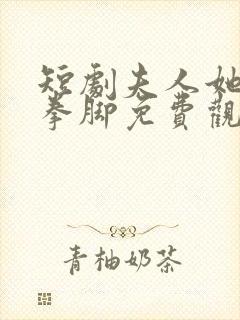 短劇夫人她
拳脚免費觀
青柚奶茶